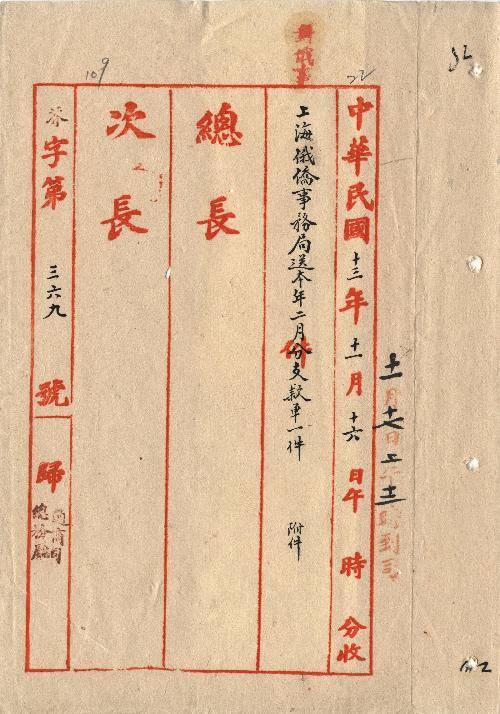 中華民國十三年十一月十六日午 時 分收
上海俄僑事務局送本年二月分支款單一件 附件
件
總長
次長
字第三六九號歸
通商司
總務廳
十一月十七日上午十一時到司
109
22